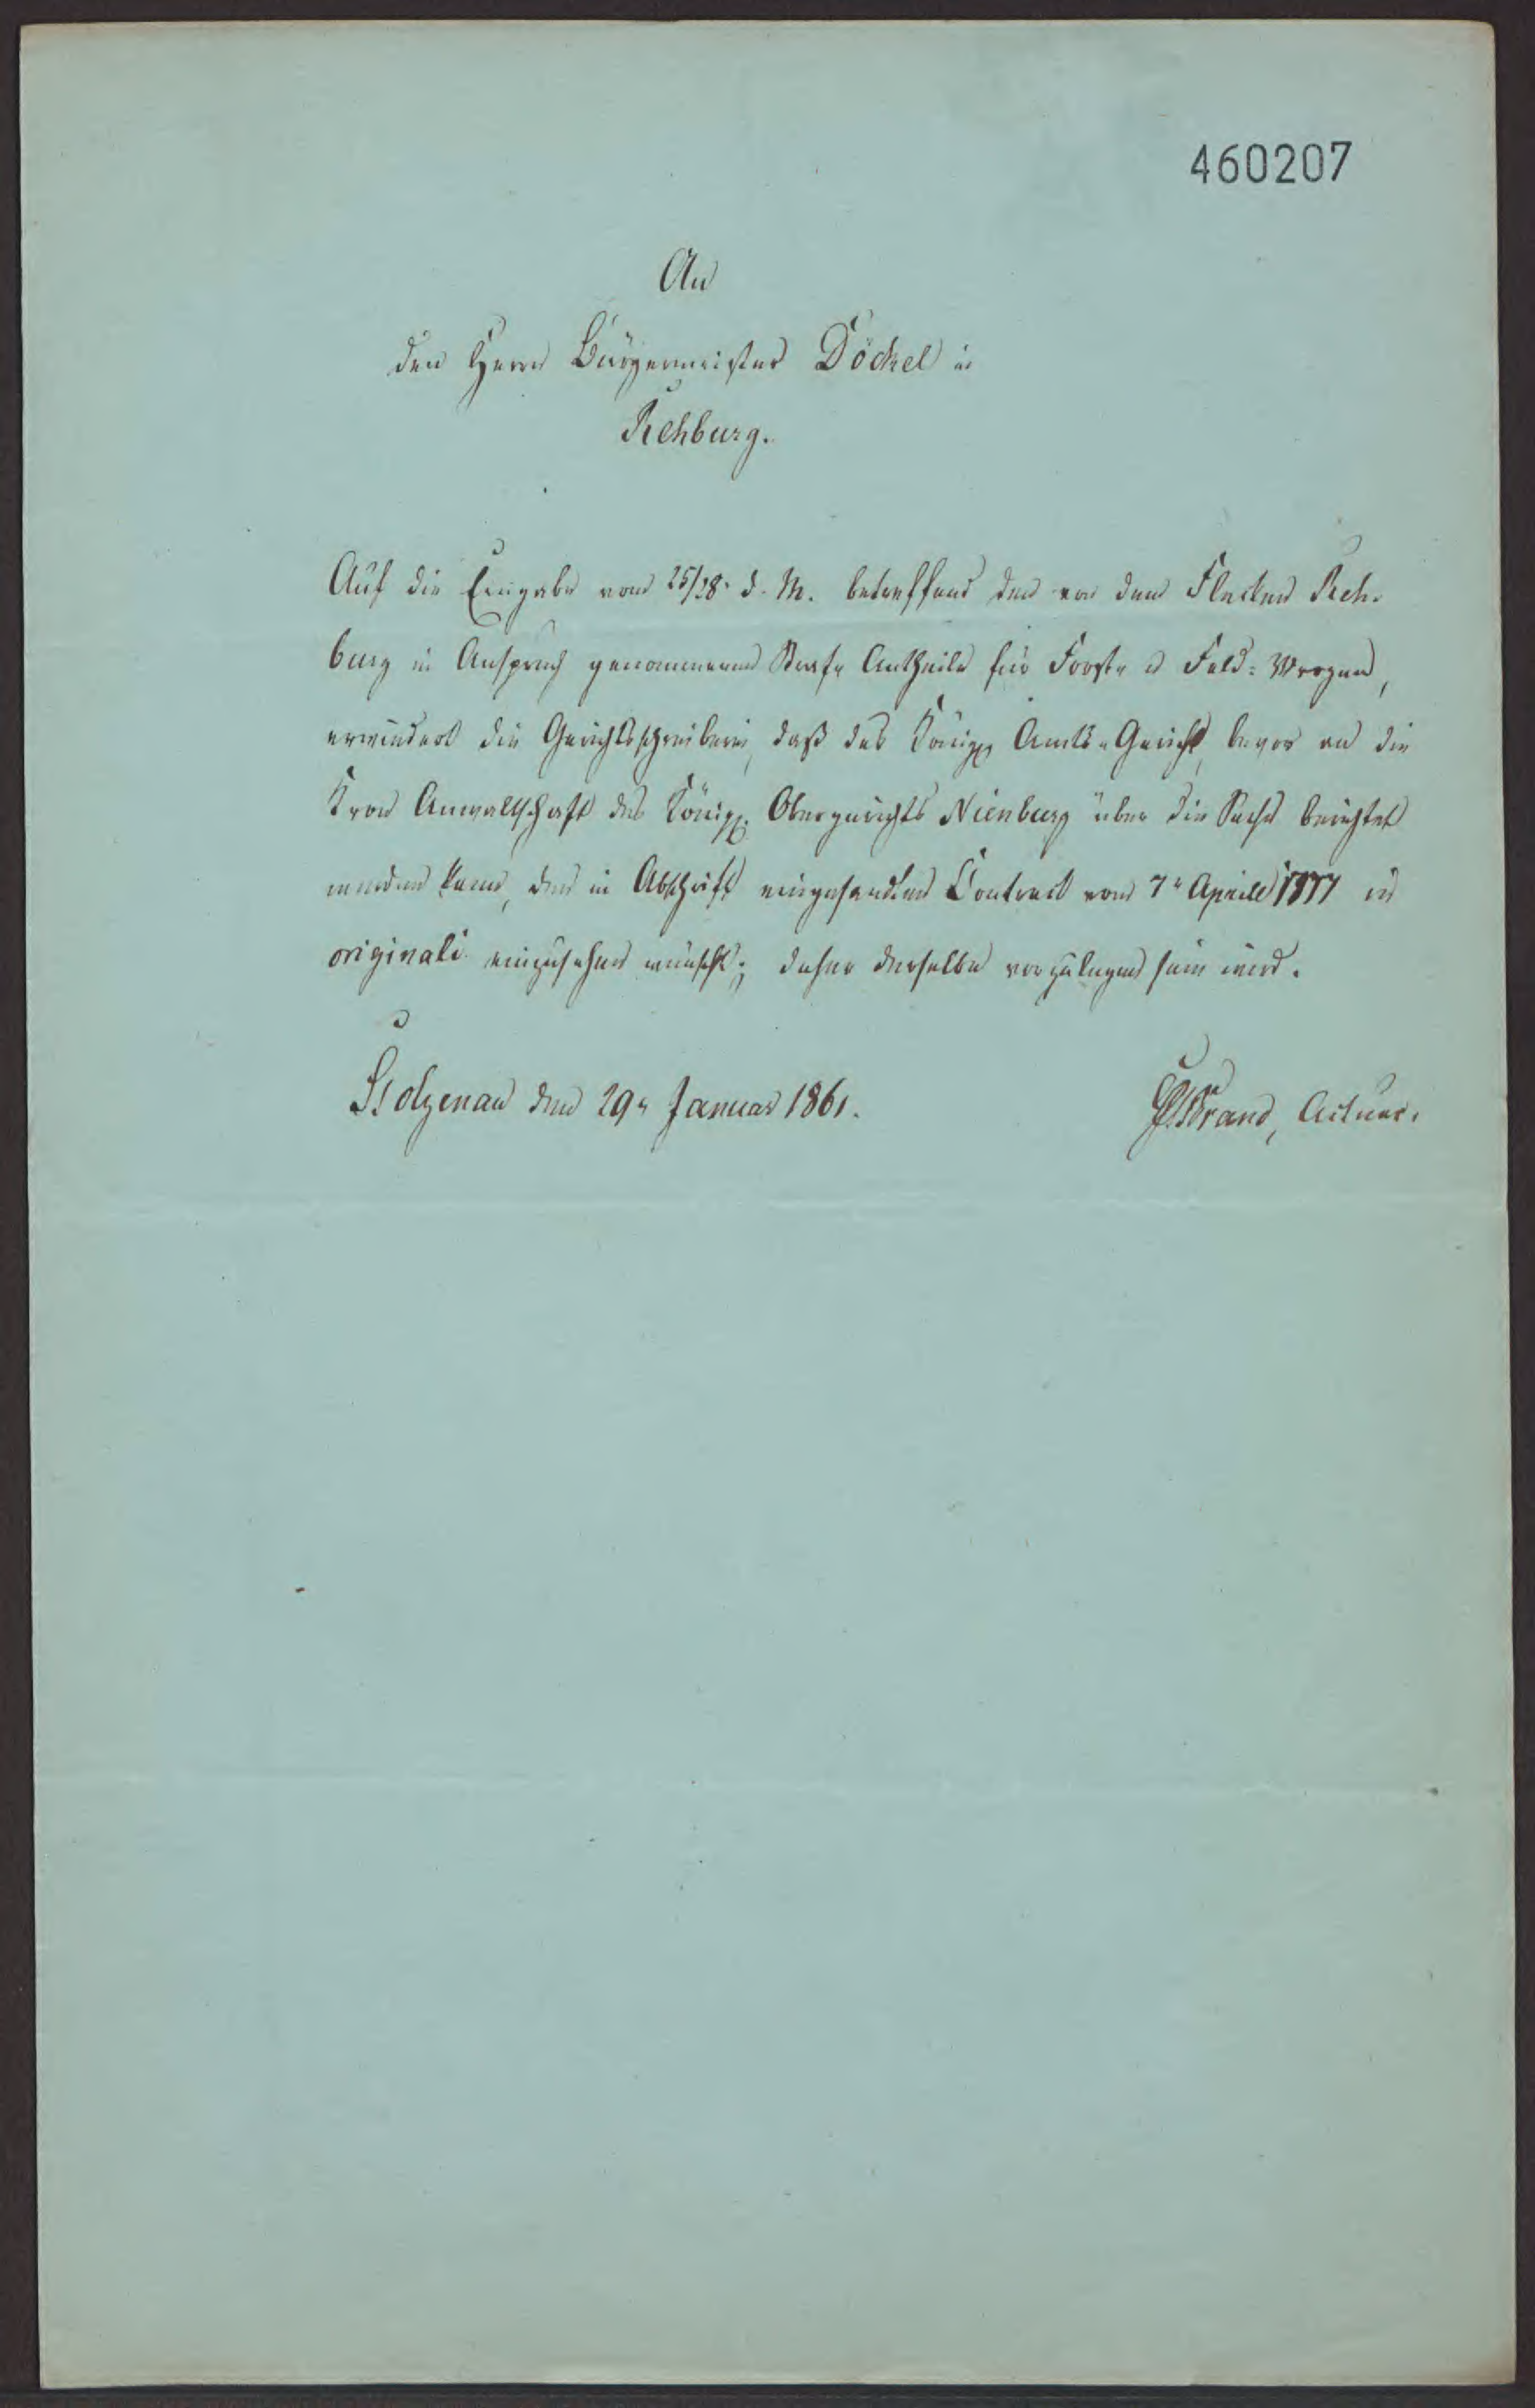 460207
An
den Herrn Bürgermeister Döckel in
Rehburg.
Auf die Eingabe vom 25/28. d. M. betreffend den von dem Flecken Reh-
burg in Anspruch genommenen Straf- Antheile für Forst- u Feld= Wrogen,
erwiedert die Gerichtsschreiberei, daß das Königl. Amts-Gericht, bevor an die
Kron Anwaltschaft des Königl. Obergerichts Nienburg über die Sache berichtet
werden kann, den in Abschrift eingesandten Contract vom 7n Aprill in
originali einzusehen wünscht; daher derselbe vorzulegen sein wird.
Stolzenau den 29n Januar 1861.
Brand, Actuar.